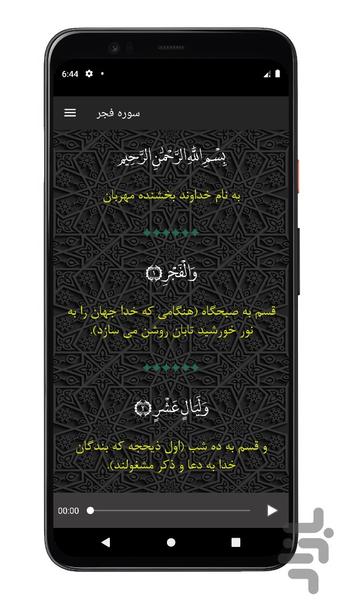 6:44
سوره فجر
بِسْمِ اللَّهِ الرَّحْمَٰنِ الرَّحِيمِ
به نام خداوند بخشنده مهربان
وَالْفَجْرِ ﴿١﴾
قسم به صبحگاه (هنگامی که خدا جهان را به
نور خورشید تابان روشن می سازد).
وَلَيَالٍ عَشْرٍ ﴿٢﴾
و قسم به ده شب (اول ذیحجه که بندگان
خدا به دعا و ذکر مشغولند).
00:00
بازار